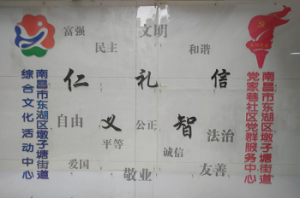 富强
文明
民主
和谐
仁
礼
信
自由
义
公正
智
法治
平等
诚信
爱国
敬业
友善
南昌市东湖区墩子塘街道
综合文化活动中心
南昌市东湖区墩子塘街道
党家巷社区党群服务中心